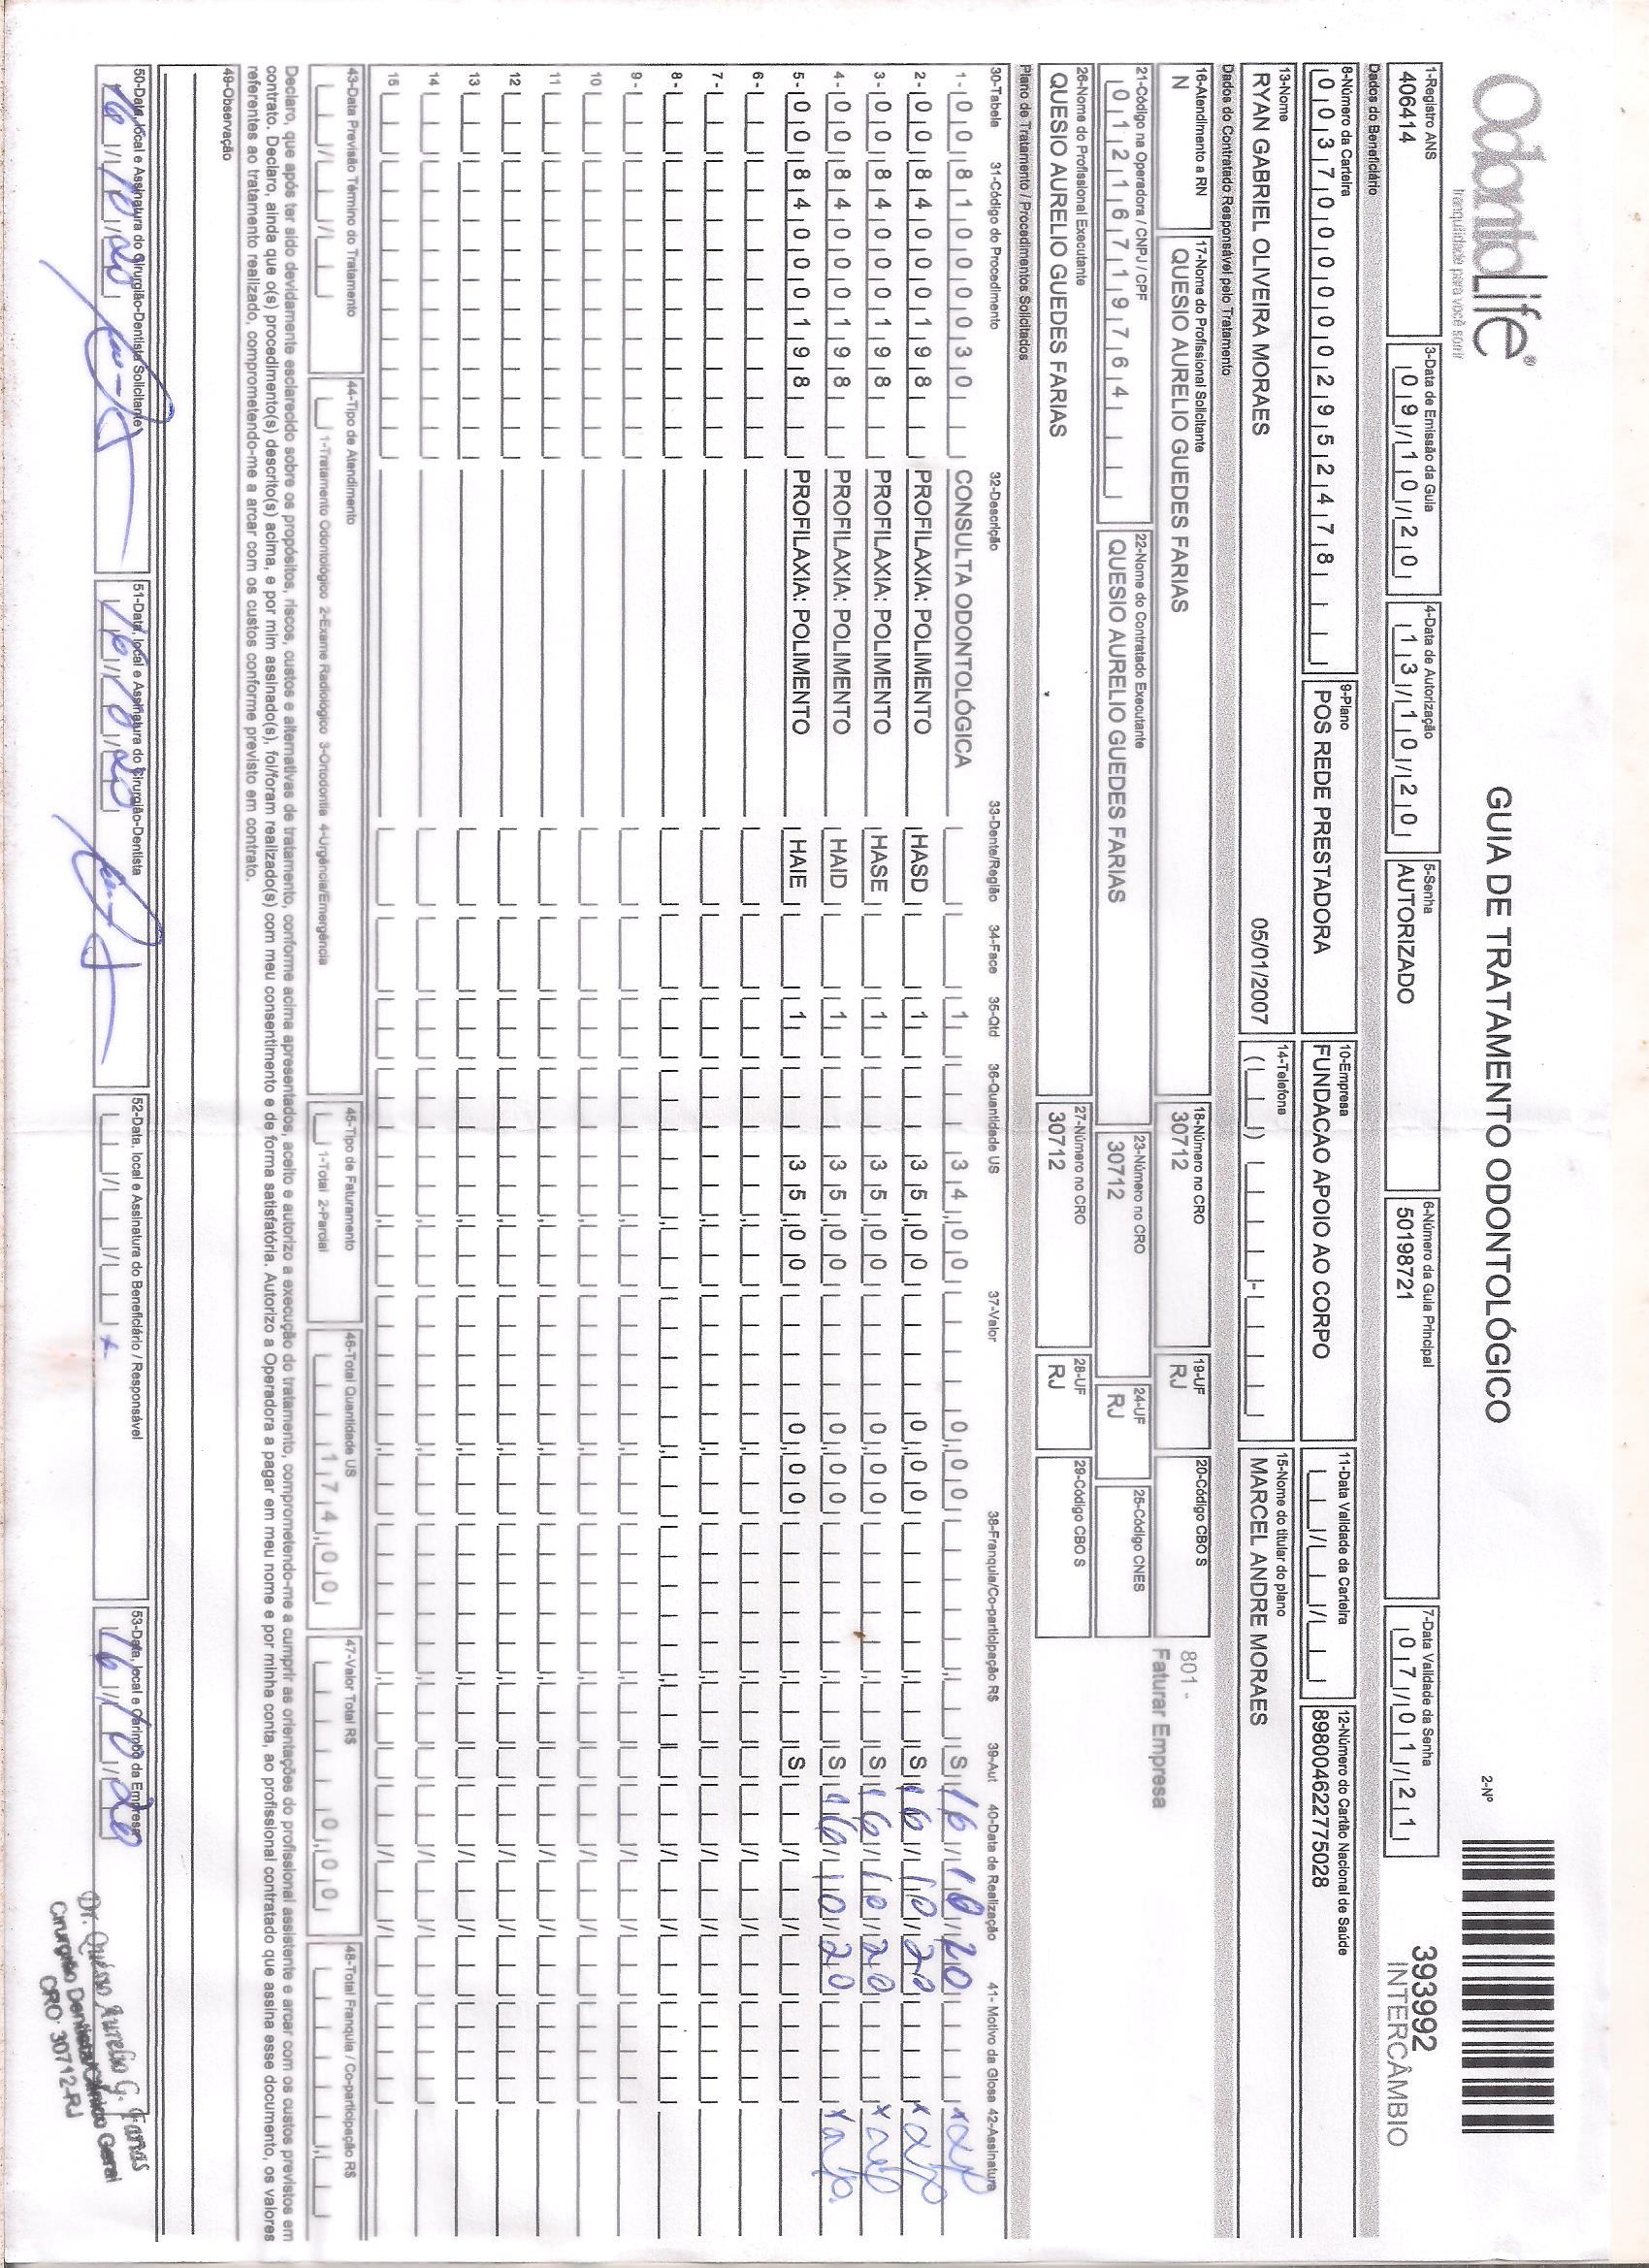 OdontoLife®
tranquilidade para você sorrir
GUIA DE TRATAMENTO ODONTOLÓGICO
2-Nº
393992
INTERCÂMBIO
1-Registro ANS
406414
3-Data de Emissão da Guia
09/10/20
4-Data de Autorização
13/10/20
5-Senha
AUTORIZADO
6-Número da Guia Principal
50198721
7-Data Validade da Senha
07/01/21
Dados do Beneficiário
8-Número da Carteira
00370000002952478
9-Plano
POS REDE PRESTADORA
10-Empresa
FUNDACAO APOIO AO CORPO
11-Data Validade da Carteira
12-Número do Cartão Nacional de Saúde
898004622775028
13-Nome
RYAN GABRIEL OLIVEIRA MORAES 05/01/2007
14-Telefone
15-Nome do titular do plano
MARCEL ANDRE MORAES
Dados do Contratado Responsável pelo Tratamento
16-Atendimento a RN
N
17-Nome do Profissional Solicitante
QUESIO AURELIO GUEDES FARIAS
18-Número no CRO
30712
19-UF
RJ
20-Código CBO S
801 -
Faturar Empresa
21-Código na Operadora / CNPJ / CPF
01216719764
22-Nome do Contratado Executante
QUESIO AURELIO GUEDES FARIAS
23-Número no CRO
30712
24-UF
RJ
25-Código CNES
26-Nome do Profissional Executante
QUESIO AURELIO GUEDES FARIAS
27-Número no CRO
30712
28-UF
RJ
29-Código CBO S
Plano de Tratamento / Procedimentos Solicitados
30-Tabela 31-Código do Procedimento 32-Descrição 33-Dente/Região 34-Face 35-Qtd 36-Quantidade US 37-Valor 38-Franquia/Co-participação R$ 39-Aut 40-Data de Realização 41- Motivo da Glosa 42-Assinatura
1- 00 81000030 CONSULTA ODONTOLÓGICA 1 34,00 0,00 S 16/10/20
2- 00 84000198 PROFILAXIA: POLIMENTO HASD 1 35,00 0,00 S 16/10/20
3- 00 84000198 PROFILAXIA: POLIMENTO HASE 1 35,00 0,00 S 16/10/20
4- 00 84000198 PROFILAXIA: POLIMENTO HAID 1 35,00 0,00 S 16/10/20
5- 00 84000198 PROFILAXIA: POLIMENTO HAIE 1 35,00 0,00 S
6-
7-
8-
9-
10
11
12
13
14
15
43-Data Previsão Término do Tratamento
44-Tipo de Atendimento
1-Tratamento Odontológico 2-Exame Radiológico 3-Ortodontia 4-Urgência/Emergência
45-Tipo de Faturamento
1-Total 2-Parcial
46-Total Quantidade US
174,00
47-Valor Total R$
0,00
48-Total Franquia / Co-participação R$
Declaro, que após ter sido devidamente esclarecido sobre os propósitos, riscos, custos e alternativas de tratamento, conforme acima apresentados, aceito e autorizo a execução do tratamento, comprometendo-me a cumprir as orientações do profissional assistente e arcar com os custos previstos em
contrato. Declaro, ainda que o(s) procedimento(s) descrito(s) acima, e por mim assinado(s), foi/foram realizado(s) com meu consentimento e de forma satisfatória. Autorizo a Operadora a pagar em meu nome e por minha conta, ao profissional contratado que assina esse documento, os valores
referentes ao tratamento realizado, comprometendo-me a arcar com os custos conforme previsto em contrato.
49-Observação
50-Data, local e Assinatura do Cirurgião-Dentista Solicitante
16/10/20
51-Data, local e Assinatura do Cirurgião-Dentista
16/10/20
52-Data, local e Assinatura do Beneficiário / Responsável
53-Data, local e Carimbo da Empresa
16/10/20
Dr. Quésio Aurelio G. Farias
Cirurgião Dentista Clínico Geral
CRO 30712-RJ